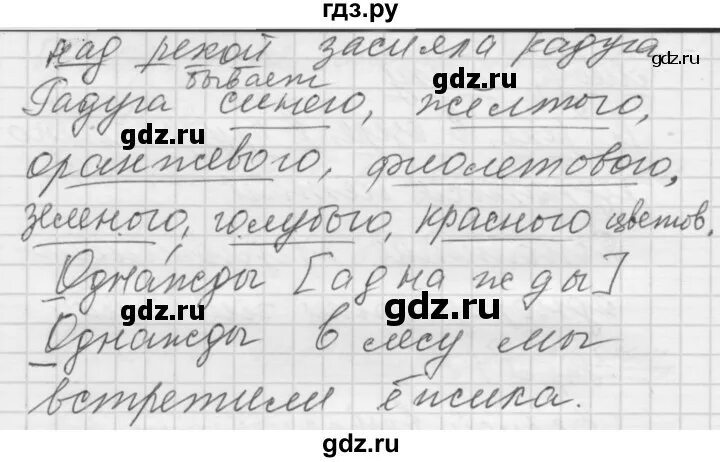 гдз.ру
над рекой засияла радуга
бывает
Радуга синего, жёлтого,
оранжевого, фиолетового,
зеленого, голубого, красного цветов.
Однажды [аднажды]
Однажды в лесу мы
встретили ёжика.
gdz.ru
gdz.ru
gdz.ru
gdz.ru
gdz.ru
gdz.ru
gdz.ru